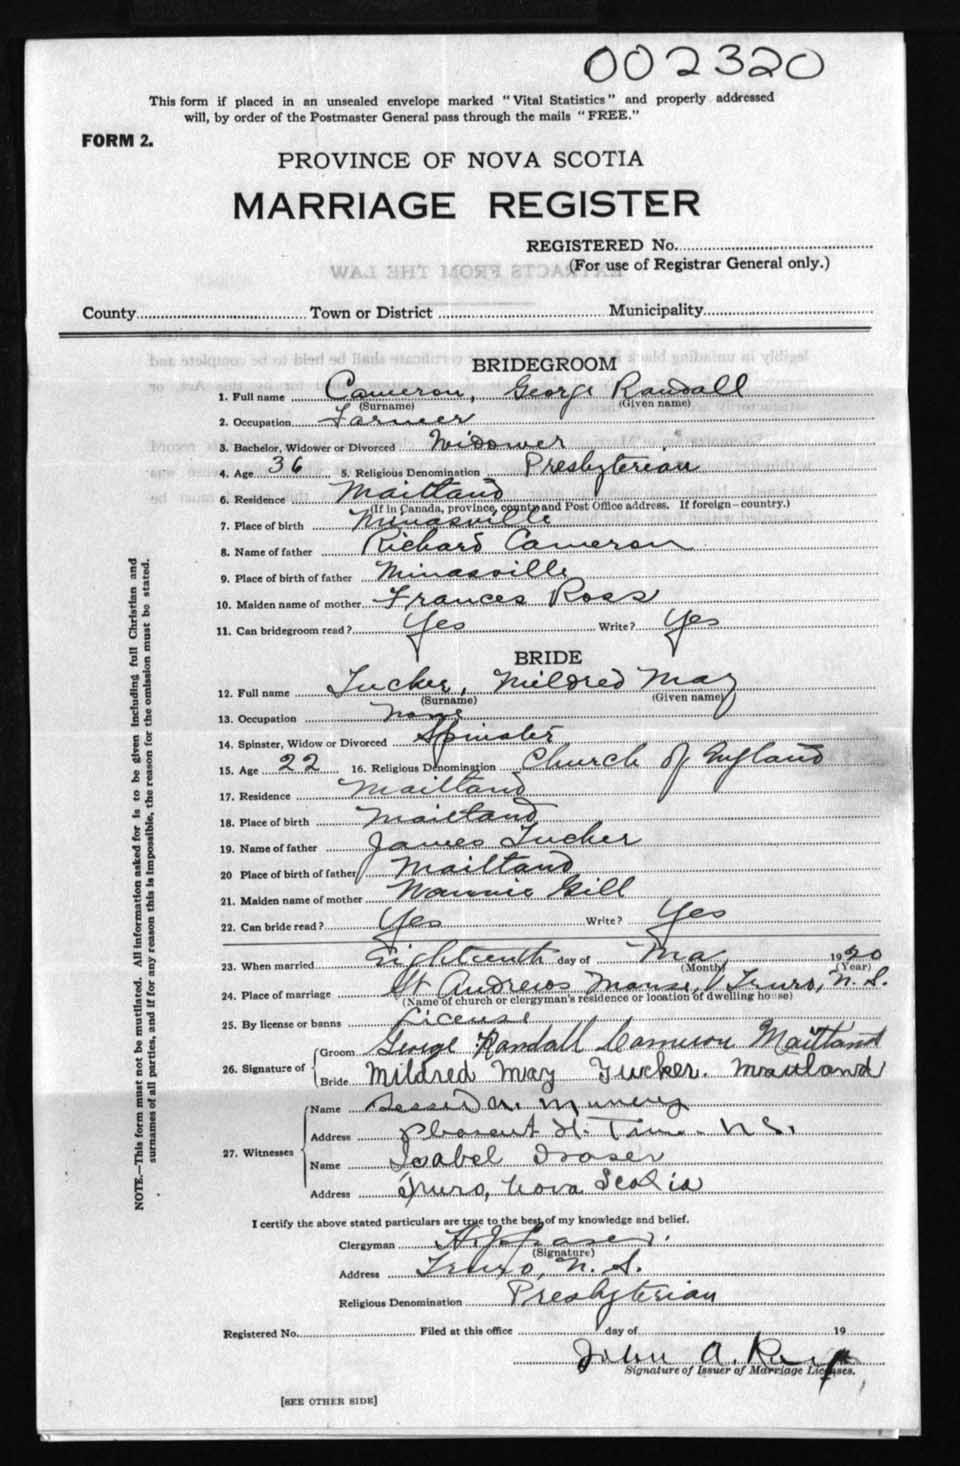 002320
This form if placed in an unsealed envelope marked "Vital Statistics" and properly addressed
will, by order of the Postmaster General pass through the mails "FREE."
FORM 2.
PROVINCE OF NOVA SCOTIA
MARRIAGE REGISTER
REGISTERED No.
(For use of Registrar General only.)
EXTRACTS FROM THE LAW
County Town or District Municipality
BRIDEGROOM
1. Full name Cameron, George Randall
(Surname) (Given name)
2. Occupation Farmer
3. Bachelor, Widower or Divorced Widower
4. Age 36 5. Religious Denomination Presbyterian
6. Residence Maitland
(If in Canada, province, county and Post Office address. If foreign—country.)
7. Place of birth Minasville
8. Name of father Richard Cameron
9. Place of birth of father Minasville
10. Maiden name of mother Frances Ross
11. Can bridegroom read? Yes Write? Yes
BRIDE
12. Full name Tucker, Mildred May
(Surname) (Given name)
13. Occupation None
14. Spinster, Widow or Divorced Spinster
15. Age 22 16. Religious Denomination Church of England
17. Residence Maitland
18. Place of birth Maitland
19. Name of father James Tucker
20 Place of birth of father Maitland
21. Maiden name of mother Nannie Gill
22. Can bride read? Yes Write? Yes
23. When married Eighteenth day of May 1920
(Month) (Year)
24. Place of marriage St Andrews Manse, Truro, N.S.
(Name of church or clergyman's residence or location of dwelling house)
25. By license or banns License
26. Signature of
Groom George Randall Cameron Maitland
Bride Mildred May Tucker. Maitland
27. Witnesses
Name
Address N.S.
Name Isabel Fraser
Address Truro, Nova Scotia
I certify the above stated particulars are true to the best of my knowledge and belief.
Clergyman
(Signature)
Address Truro, N.S.
Religious Denomination Presbyterian
Registered No. Filed at this office day of 19
John A.
Signature of Issuer of Marriage Licenses.
[SEE OTHER SIDE]
NOTE.—This form must not be mutilated. All information asked for is to be given including full Christian and
surnames of all parties, and if for any reason this is impossible, the reason for the omission must be stated.